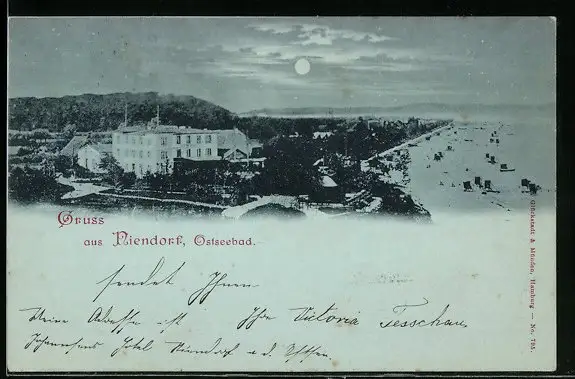 Gruss
aus Niendorf, Ostseebad.
sendet Ihnen
Meine Adresse ist Ihre Victoria Tesschau
Johannsens Hotel Niendorf a. d. Ostsee.
Glückstadt & Münden, Hamburg — No. 795.